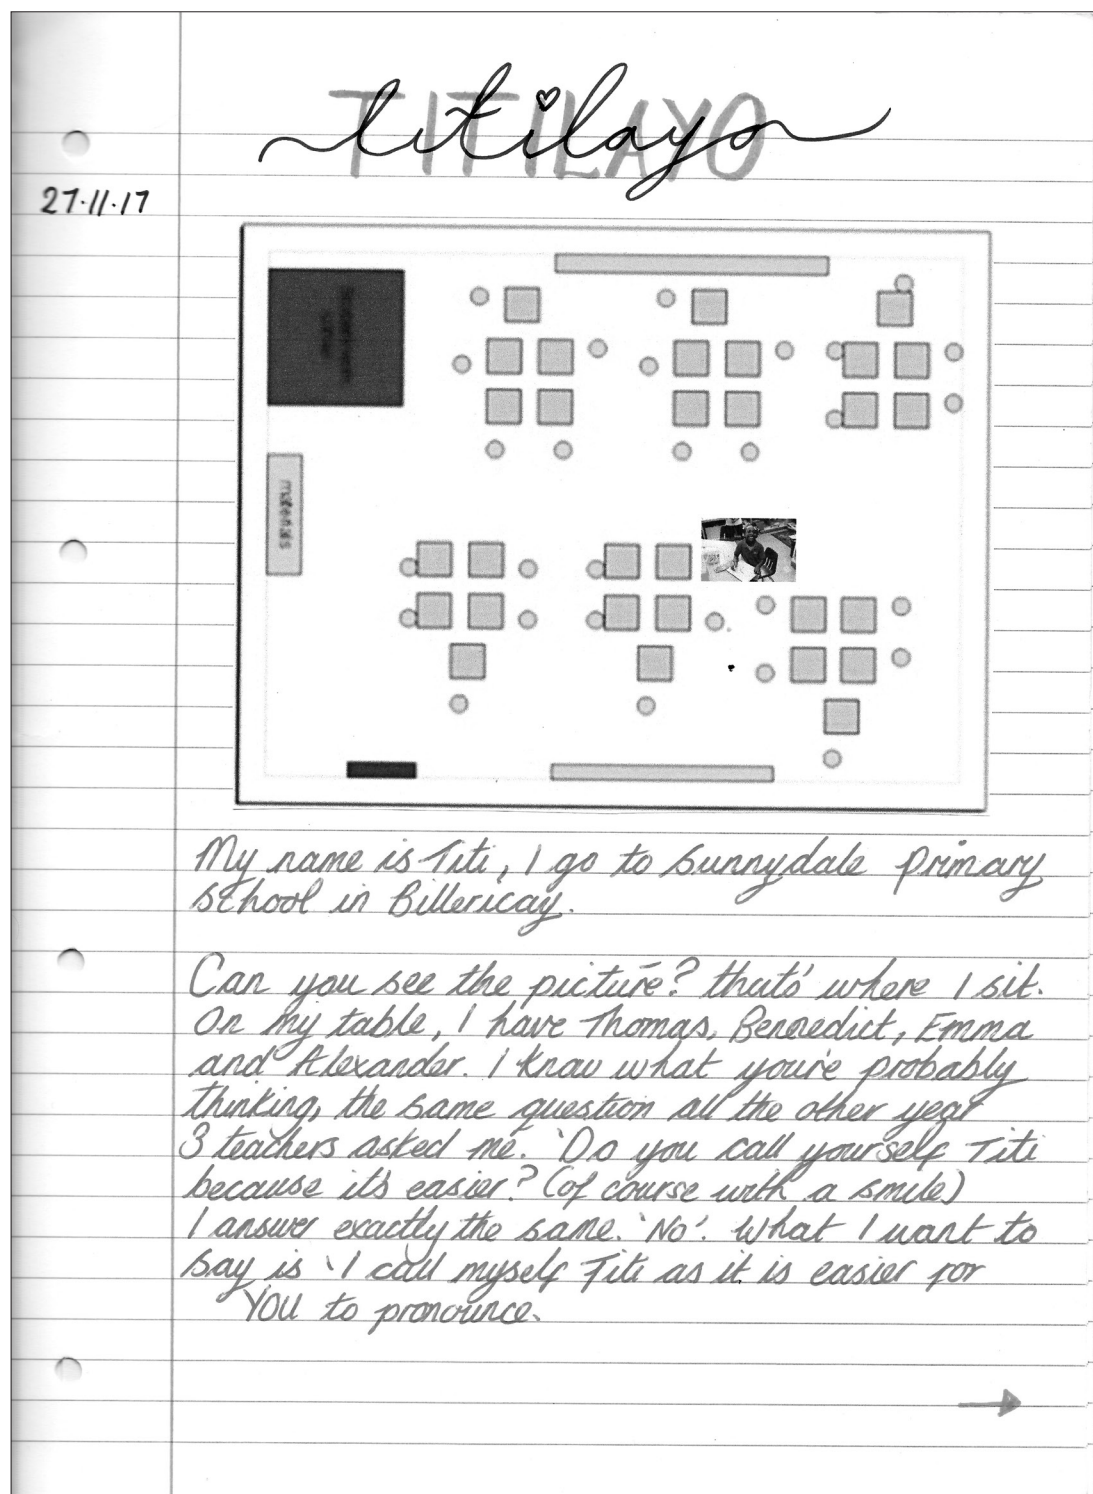 TITILAYO
titilayo
27.11.17
materials
My name is Titi, I go to Sunnydale Primary
School in Billericay.
Can you see the picture? that's where I sit.
On my table, I have Thomas, Benedict, Emma
and Alexander. I know what you're probably
thinking, the same question all the other year
3 teachers asked me. 'Do you call yourself Titi
because it's easier? (of course with a smile)
I answer exactly the same. 'No'. What I want to
say is 'I call myself Titi as it is easier for
YOU to pronounce.